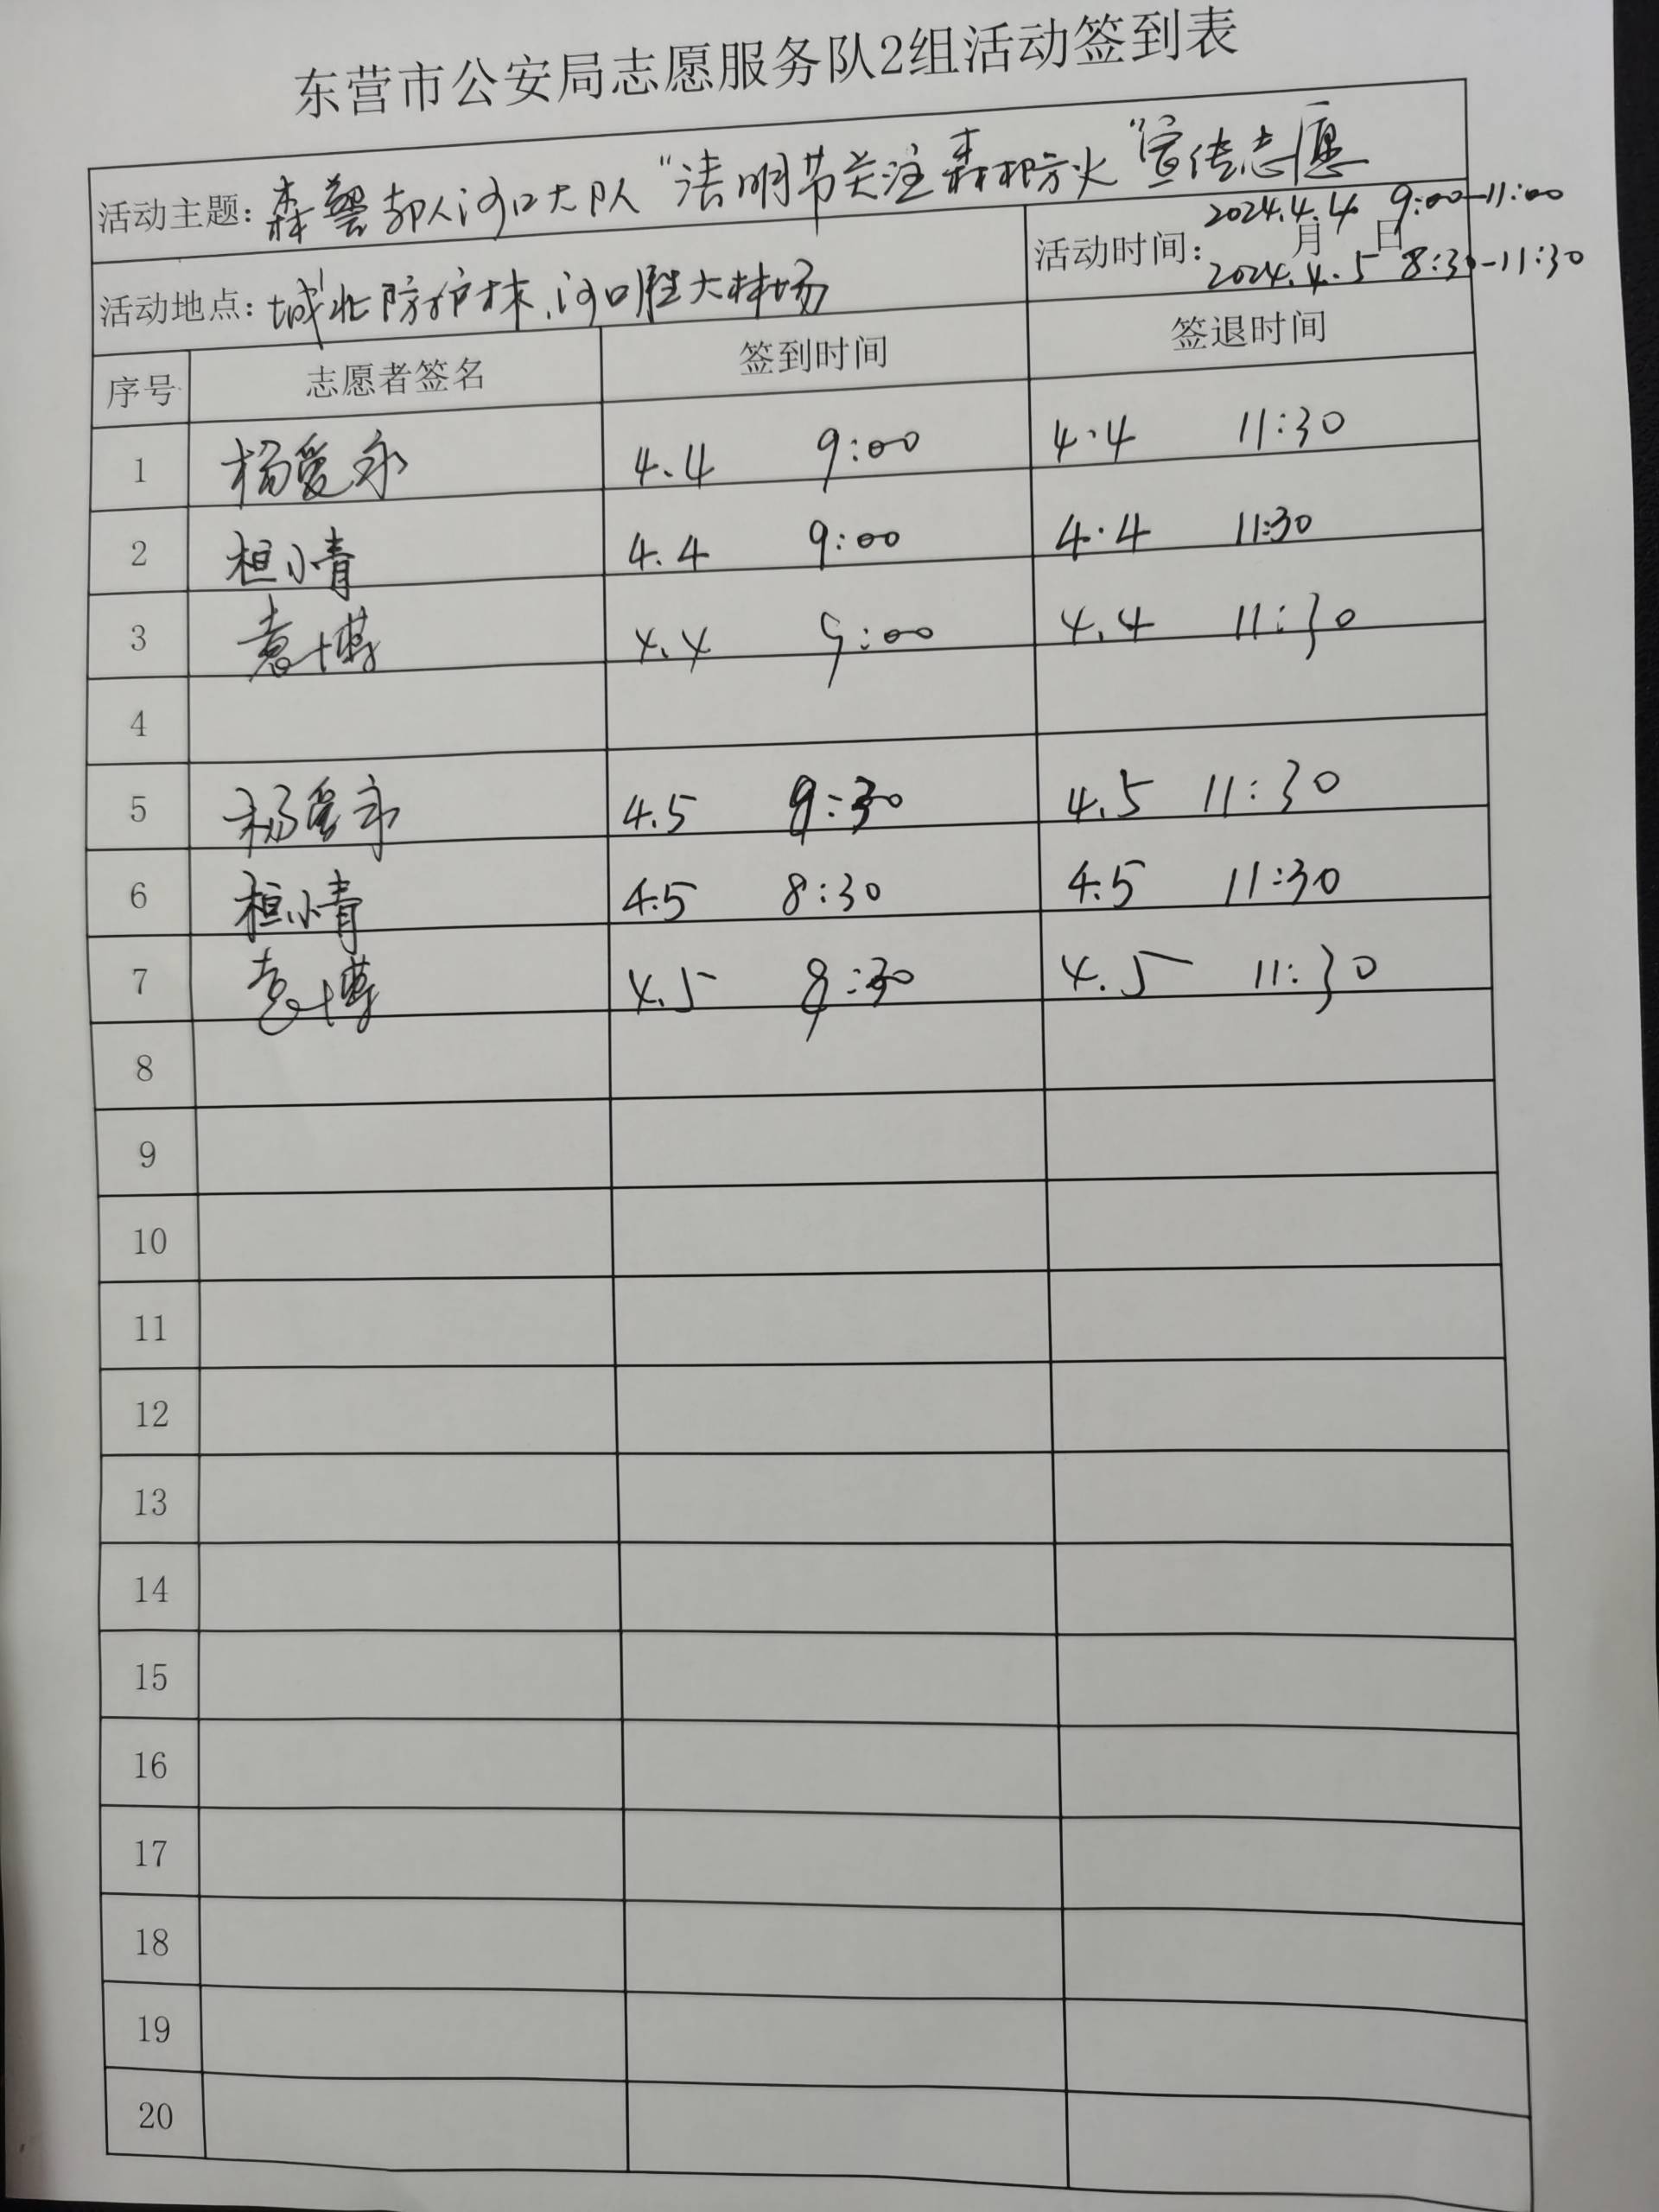 东营市公安局志愿服务队2组活动签到表
活动主题: 森警部队河口大队“清明节关注森林防火”宣传志愿
活动地点: 城北防护林、河口胜大林场
活动时间: 月 日
2024.4.4 9:00-11:00
2024.4.5 8:30-11:30
序号 志愿者签名 签到时间 签退时间
1 杨爱永 4.4 9:00 4.4 11:30
2 桓小青 4.4 9:00 4.4 11:30
3 袁博 4.4 9:00 4.4 11:30
4
5 杨爱永 4.5 :30 4.5 11:30
6 桓小青 4.5 8:30 4.5 11:30
7 袁博 4.5 8:30 4.5 11:30
8
9
10
11
12
13
14
15
16
17
18
19
20